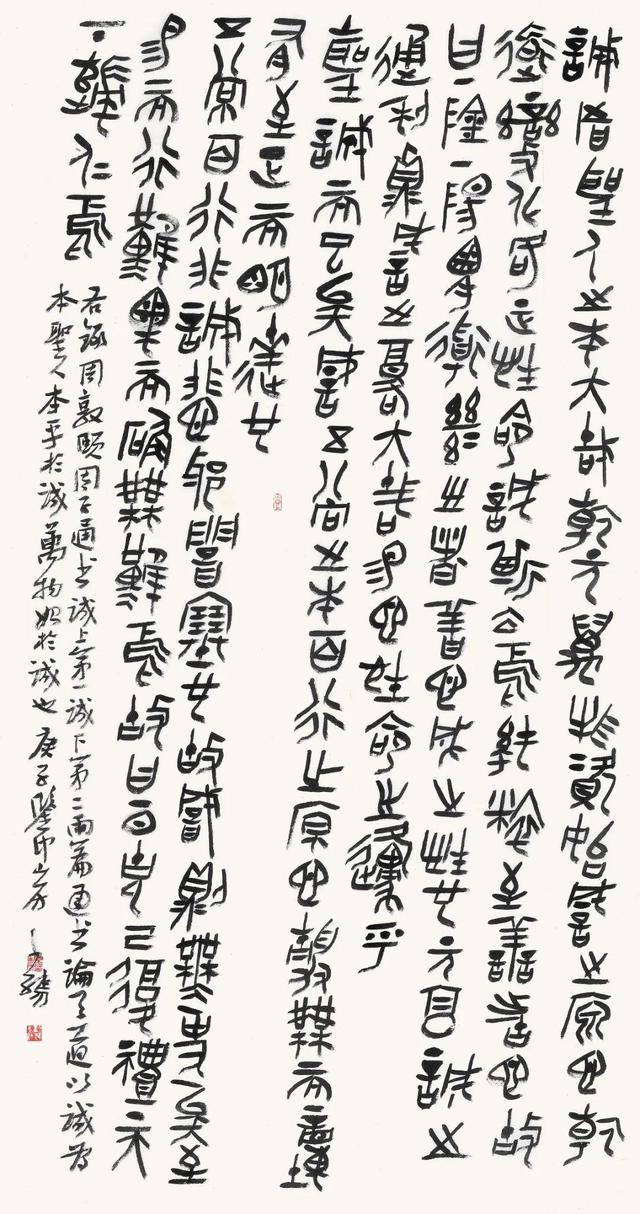 誠者聖人之本大哉乾元萬物資始誠之原也乾
道變化各正性命誠斯立焉純粹至善者也故
曰一陰一陽之謂道繼之者善也成之者性也元亨誠之
通利貞誠之復大哉易也性命之源乎
聖誠而已矣誠五常之本百行之原也靜無而動
有至正而明達也
五常百行非誠非也邪暗塞也故誠則無事矣至
易而行難果而確無難焉故曰一日克己復禮天
下歸仁焉
右錄周敦頤周子通书誠上第一誠下第二兩篇通书論道以誠为
本聖人本乎於誠萬物始於誠也庚子鑒印山房